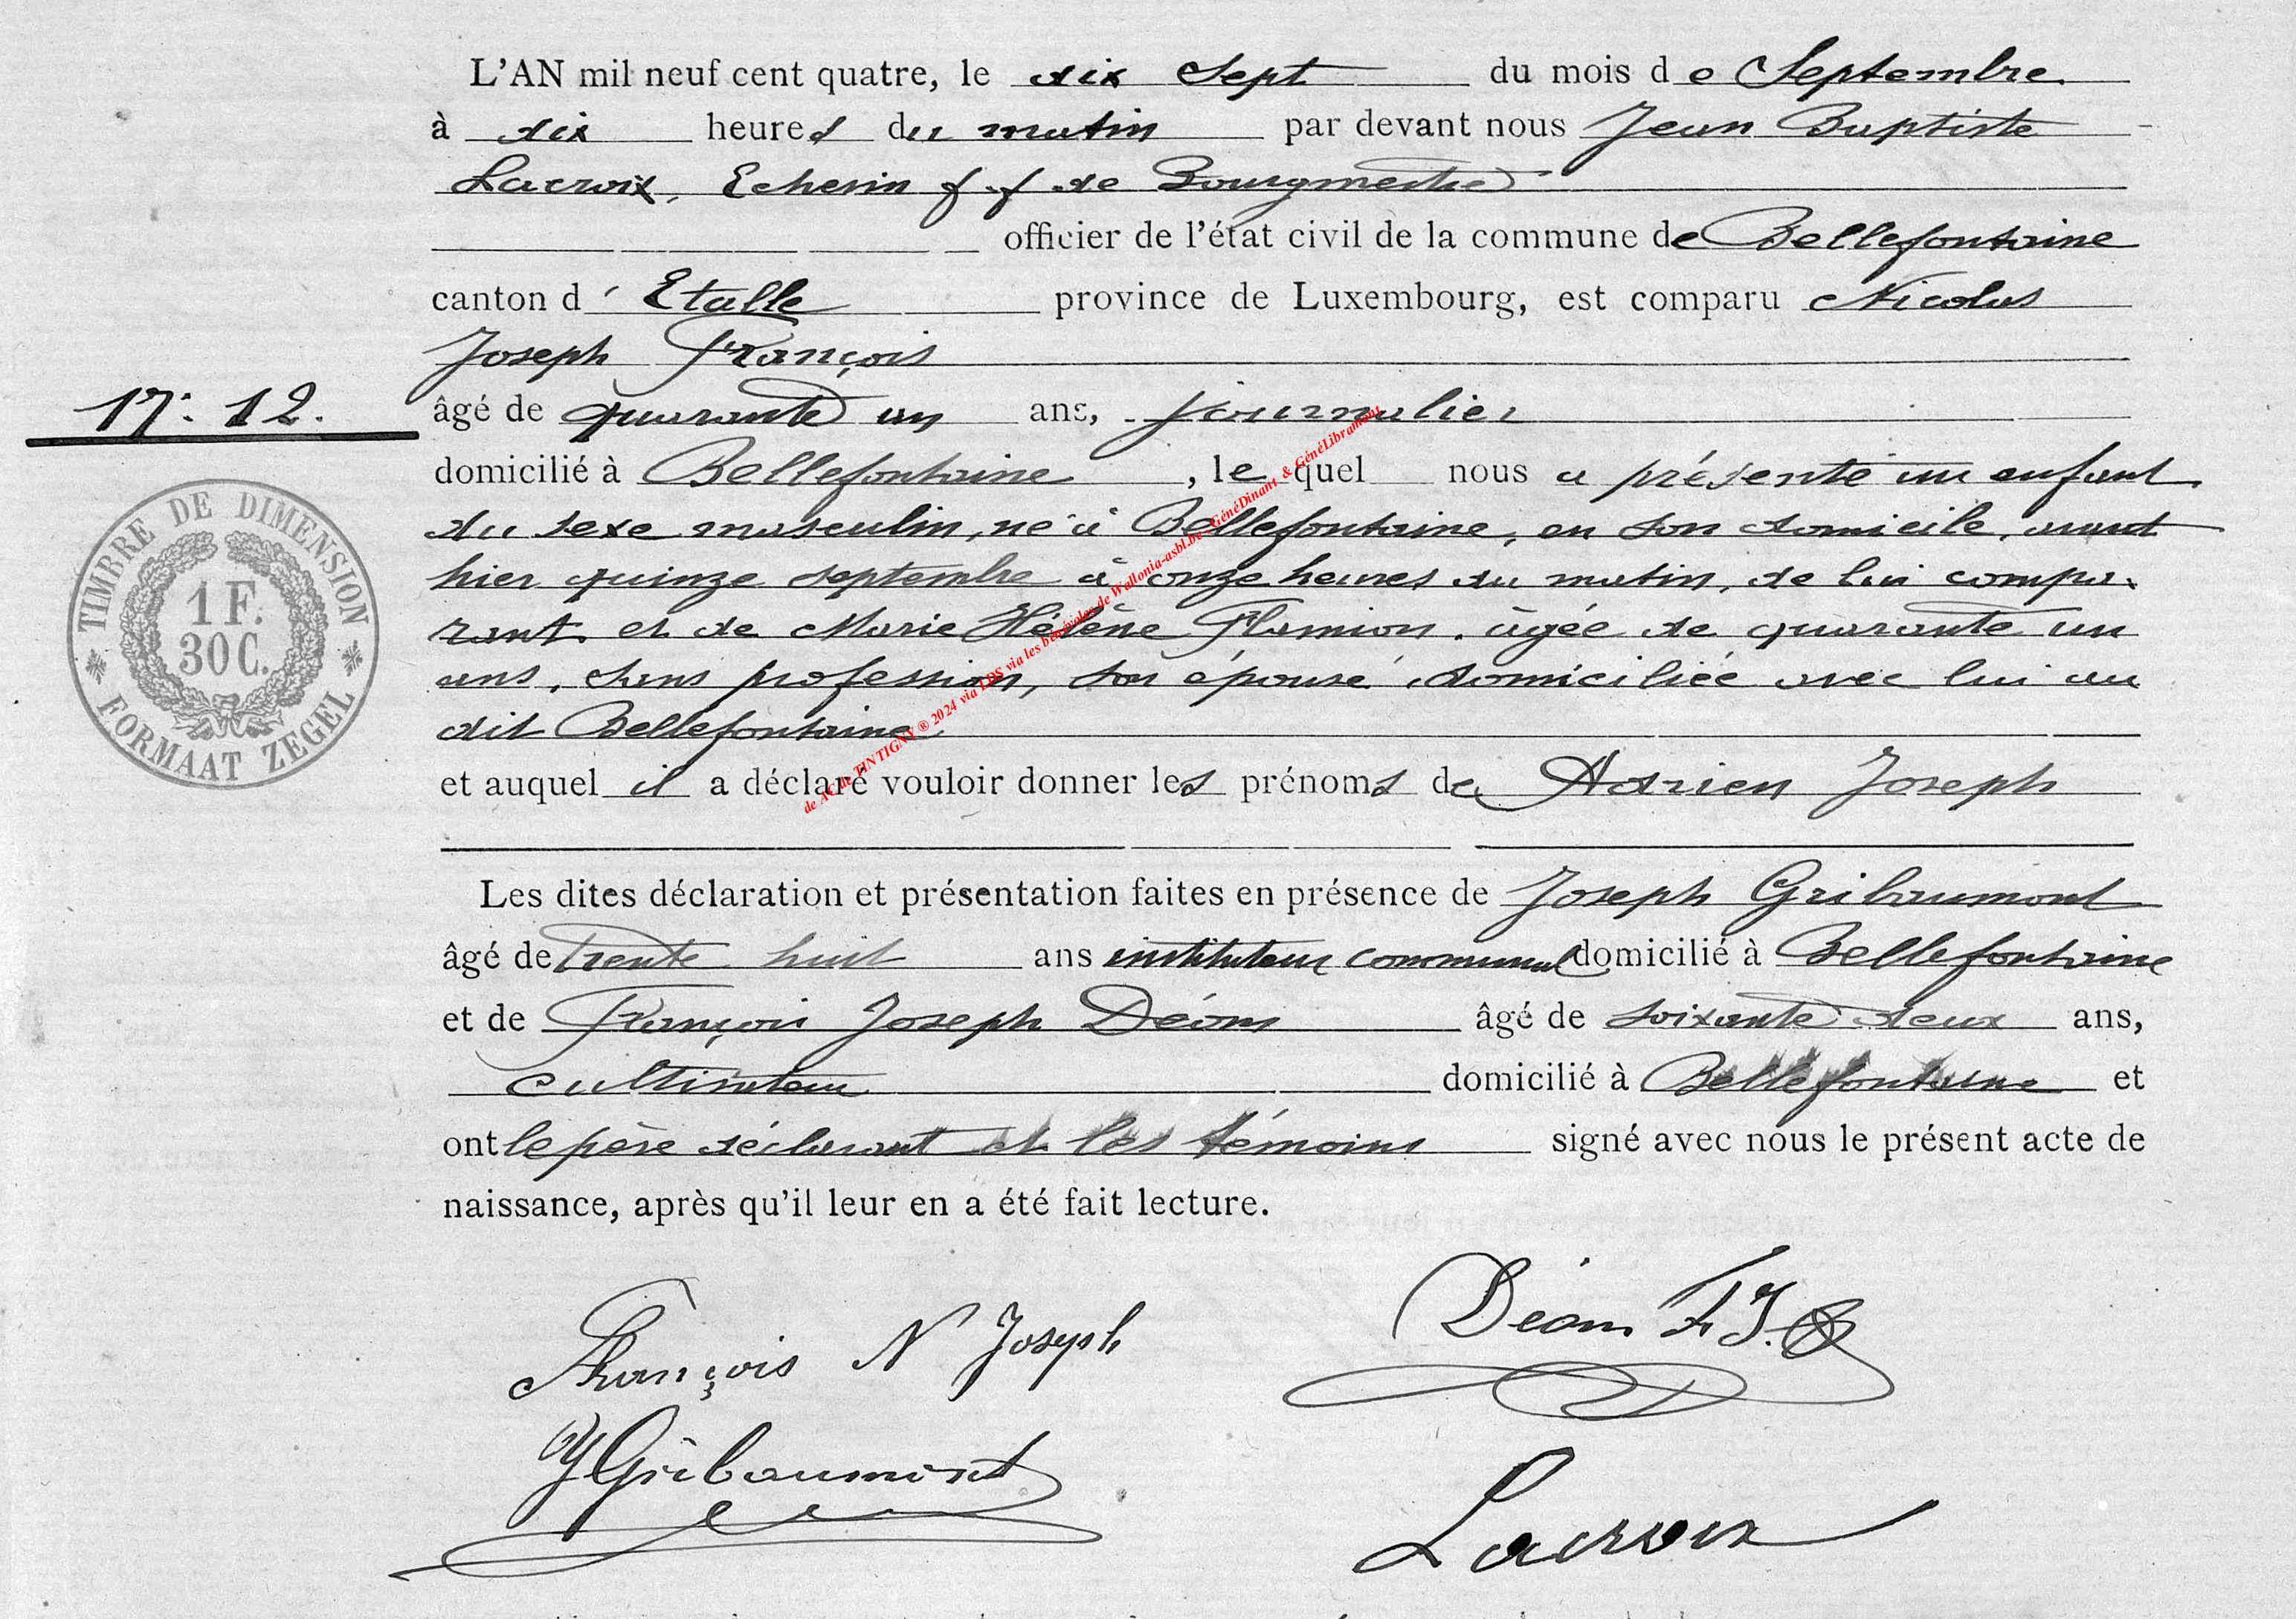 L'AN mil neuf cent quatre, le dix Sept du mois de Septembre
à dix heures du matin par devant nous Jean Baptiste
Lacroix, Echevin f.f. de Bourgmestre
officier de l'état civil de la commune de Bellefontaine
canton d'Etalle province de Luxembourg, est comparu Nicolas
Joseph François
17: 12.
âgé de quarante un ans, journalier
domicilié à Bellefontaine, lequel nous a présenté un enfant
du sexe masculin, né à Bellefontaine, en son domicile, avant
hier quinze septembre à onze heures du matin, de lui compa-
rant et de Marie Hélène Flamion, âgée de quarante un
ans, sans profession, son épouse, domiciliée avec lui au
dit Bellefontaine.
et auquel il a déclaré vouloir donner les prénoms de Adrien Joseph
TIMBRE DE DIMENSION
1 F.
30 C.
FORMAAT ZEGEL
de AC de TINTIGNY ® 2024 via LDS via les bénévoles de Wallonia-asbl.be GénéDinant & GénéLibramont
Les dites déclaration et présentation faites en présence de Joseph Gribaumont
âgé de trente huit ans instituteur communal domicilié à Bellefontaine
et de François Joseph Déom âgé de soixante deux ans,
cultivateur domicilié à Bellefontaine et
ont le père déclarant et les témoins signé avec nous le présent acte de
naissance, après qu'il leur en a été fait lecture.
François N Joseph
Déom F J.
J Gribaumont
Lacroix